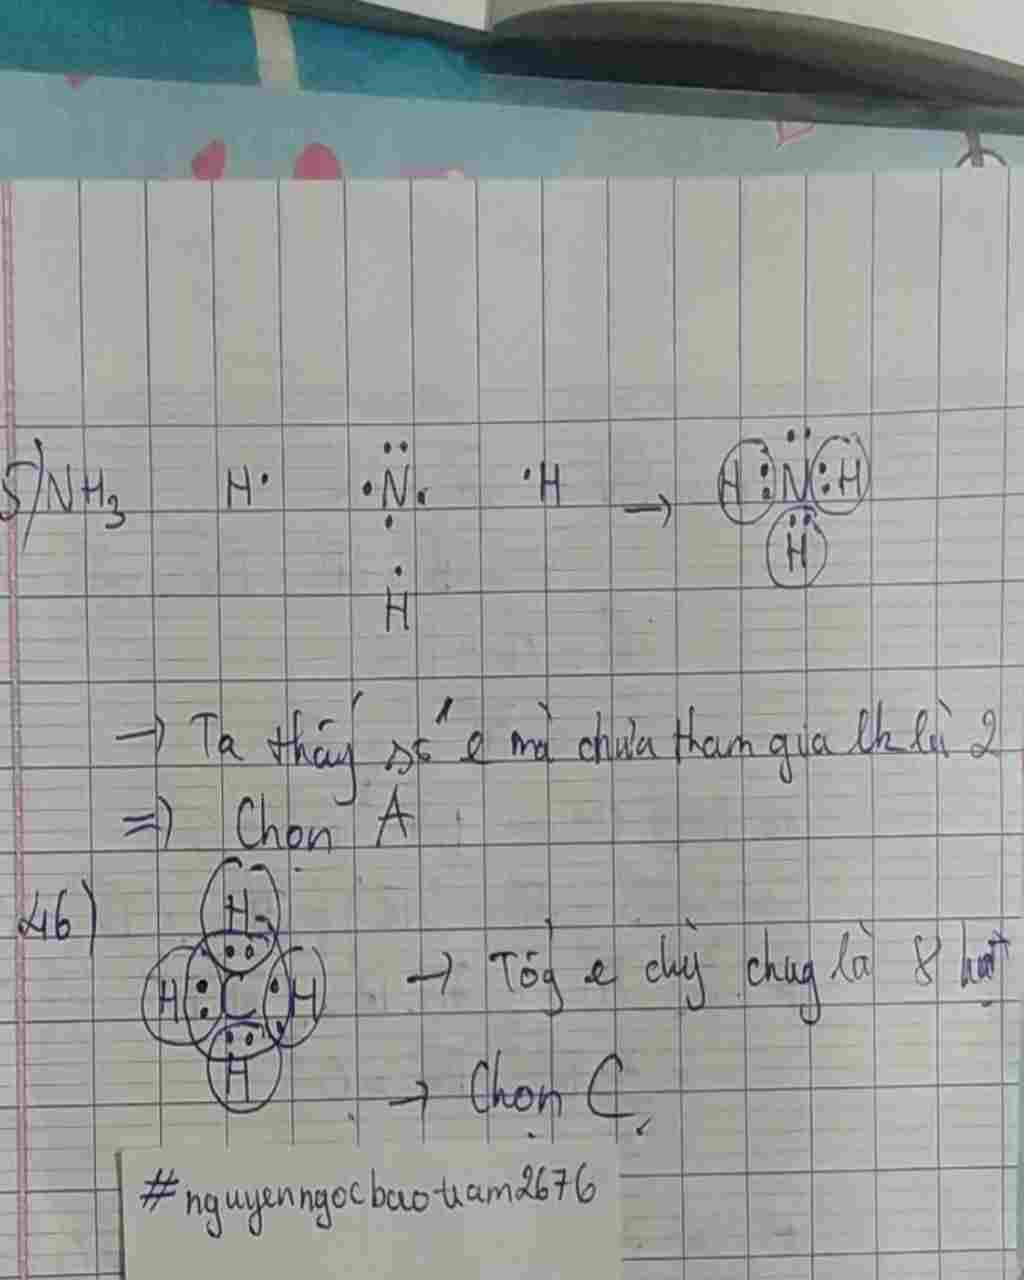 5) NH3 H· ·N· ·H → H:N:H
H
H
→ Ta thấy số e mà chưa tham gia lk là 2
=> Chọn A
H
46)
H:C:H → Tổg e dùg chug là 8 hạt
H
→ Chọn C.
#nguyenngocbaotram2676